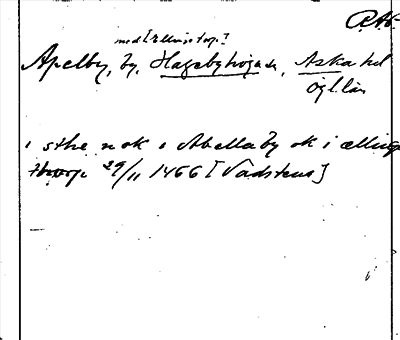 RAp.
med [Ellingstorp?]
Apelby, by, Hagebyhöga sn, Aska hd
Ögl. län
i sthe nok i Abellaby ok i ælling
thorp 29/11 1466 [Vadstena]